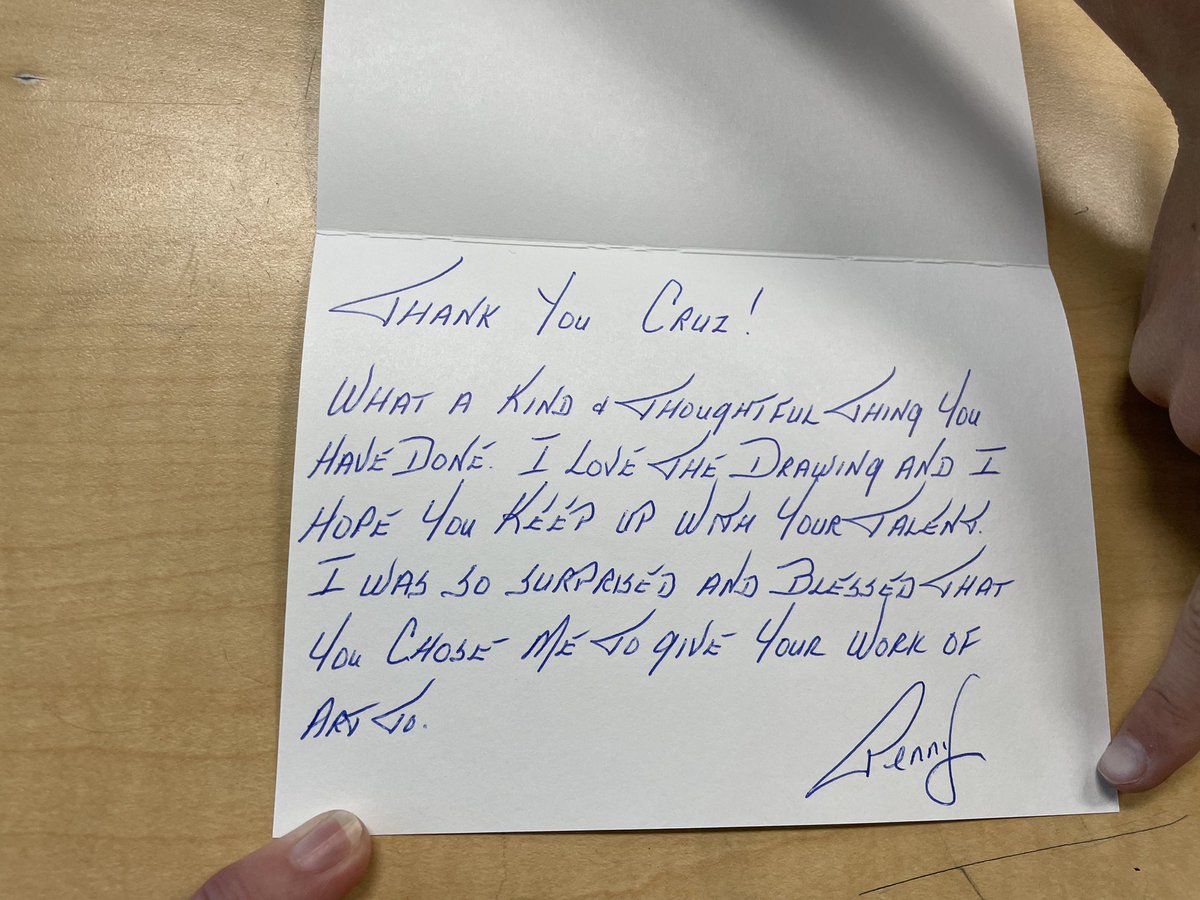 THANK YOU CRUZ!
WHAT A KIND & THOUGHTFUL THING YOU
HAVE DONE. I LOVE THE DRAWING AND I
HOPE YOU KEEP UP WITH YOUR TALENT.
I WAS SO SURPRISED AND BLESSED THAT
YOU CHOSE ME TO GIVE YOUR WORK OF
ART TO.
Penny